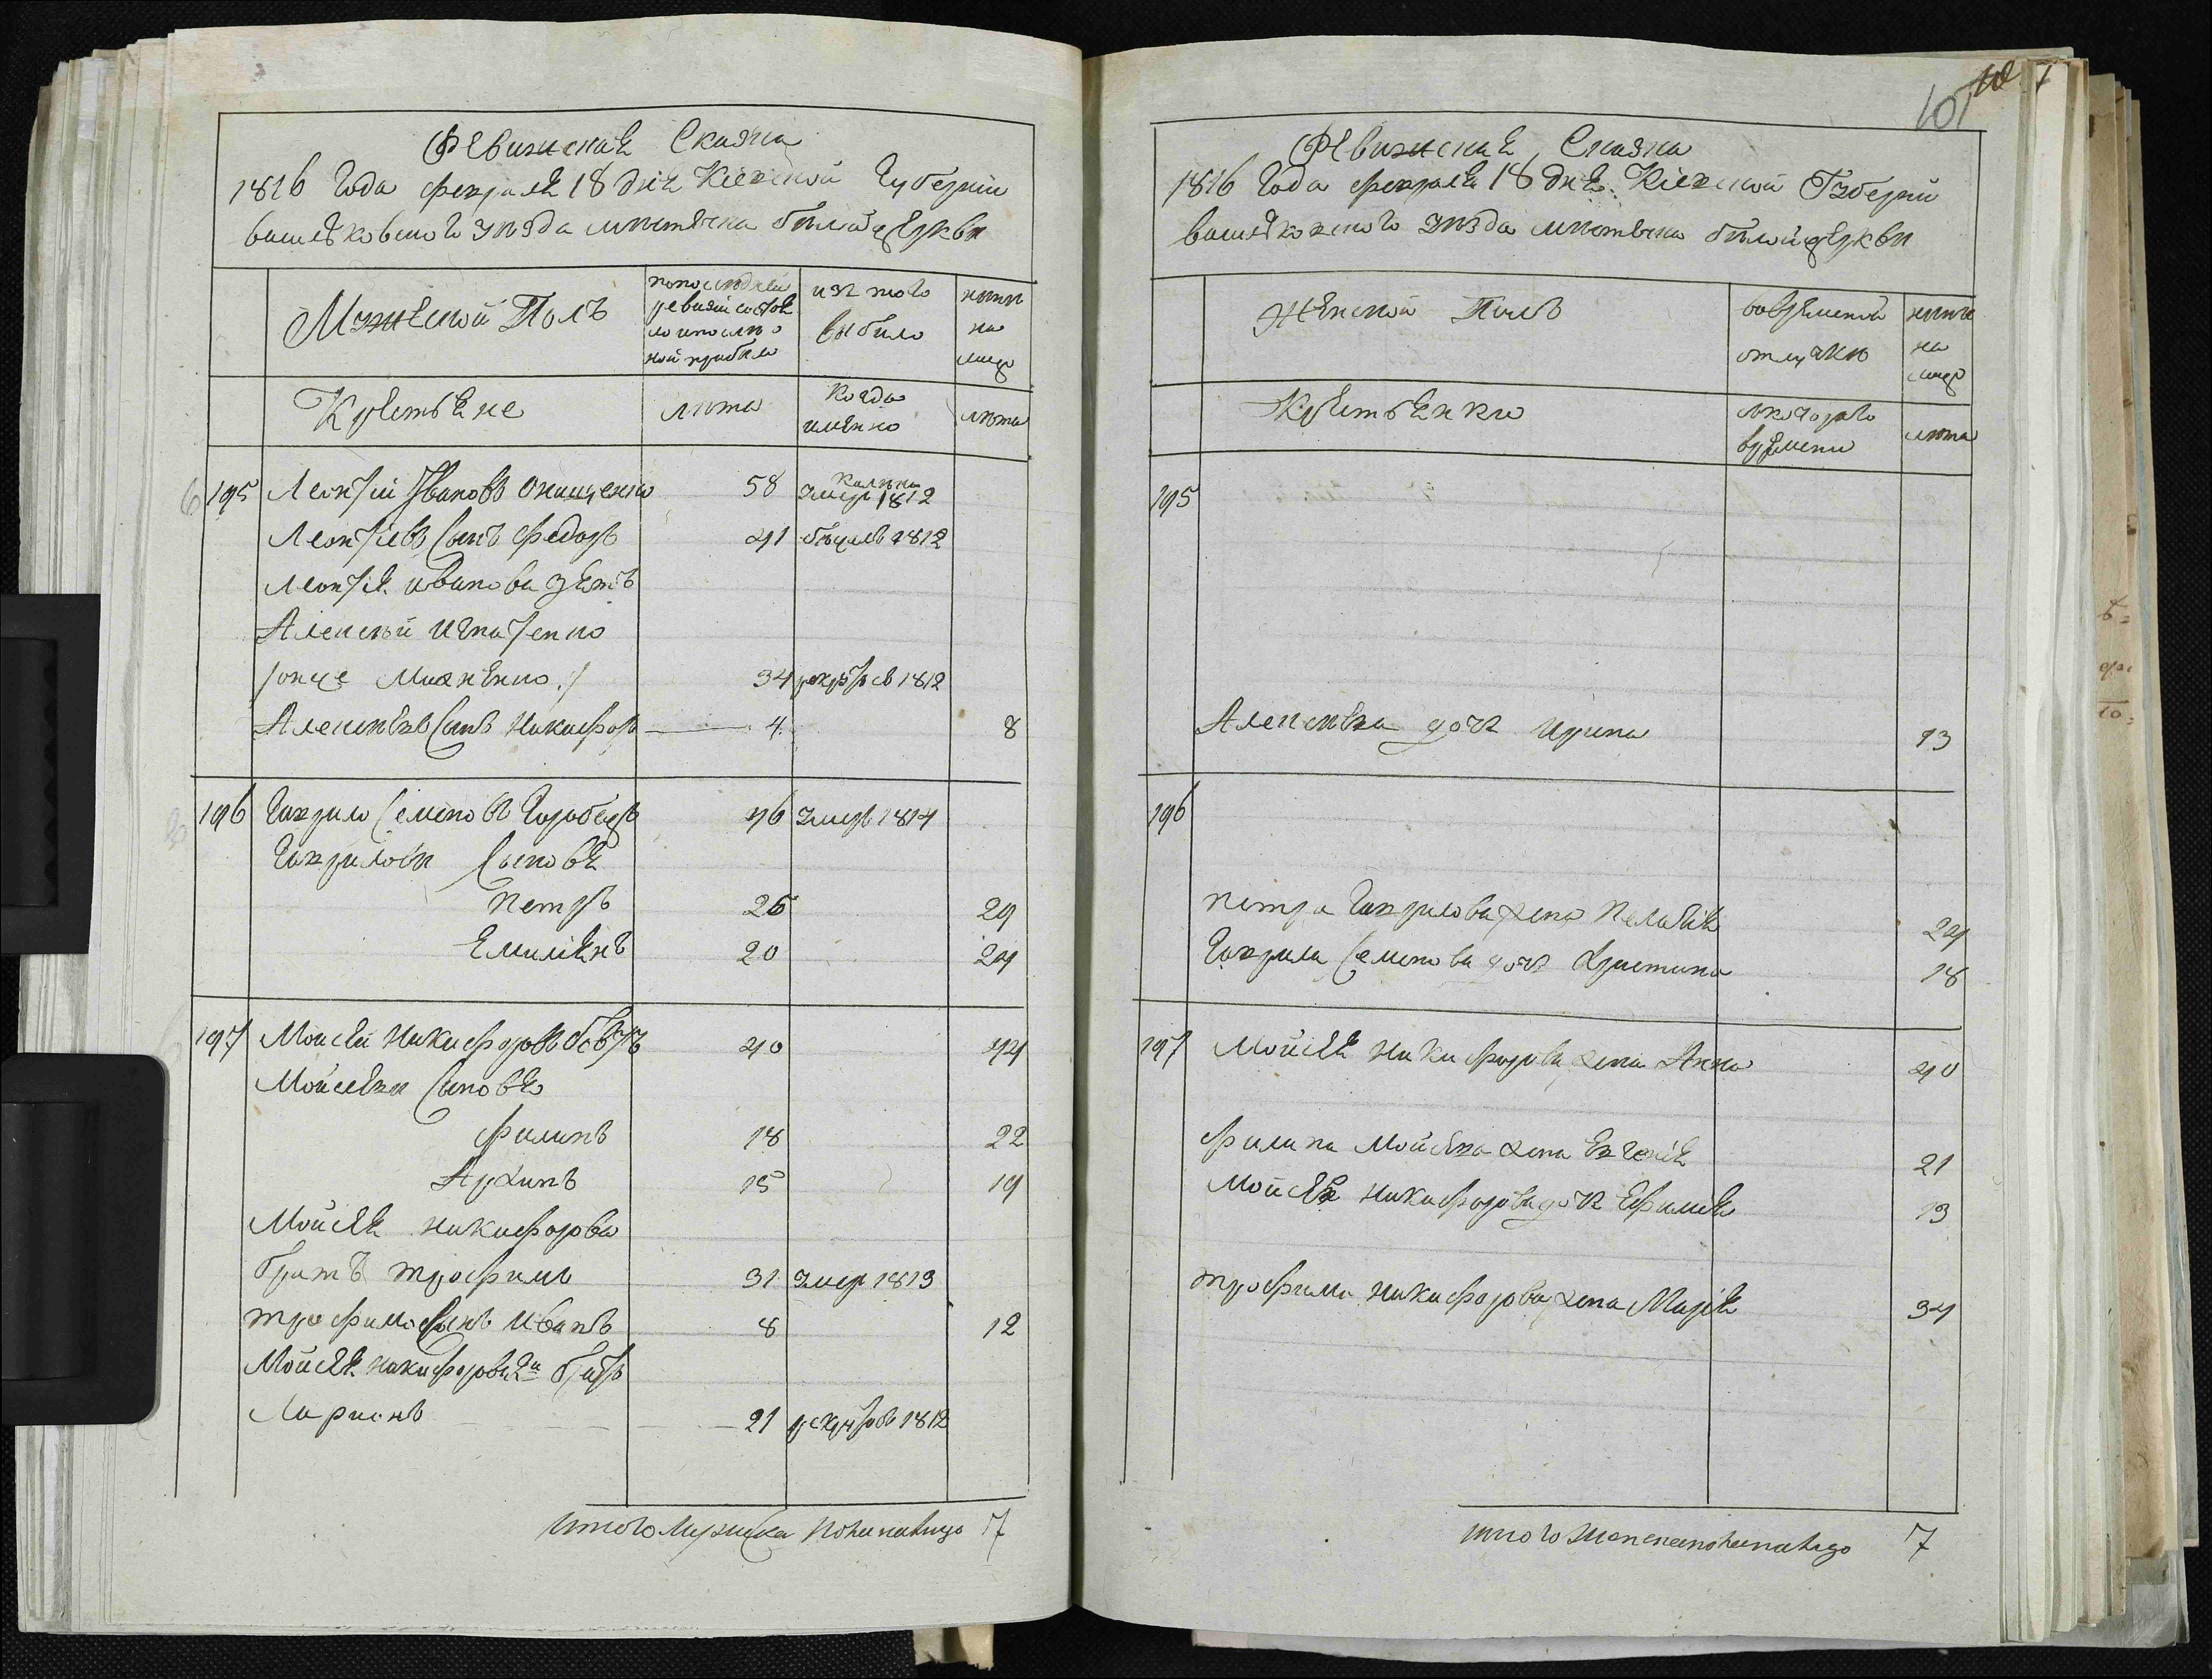 Ревизская Сказка
1816 Года февраля 18 дня Кіевской Губерніи
васильковского уезда местечка белой церкви
Мужеской Полъ
по последней ревизіи состояло и после оной прибыло
изъ того выбыло
ныне на лицо
Крестьяне
лета
Когда именно
лета
195 Леонтій Ивановъ Онищенко 58 умеръ 1812
Леонтіевъ Сынъ Федоръ 41 1812
Леонтія Иванова зять
Алексей Игнатенко
онже Михненко 34 рекрутъ въ 1812
Алексеевъ Сынъ Никифоръ 4 8
196 Гаврило Семеновъ Горобецъ 46 умеръ 1814
Гавриловы Сыновя
Петръ 25 29
Емилянъ 20 24
197 Мойсей Никифоровъ 40 44
Мойсеевы Сыновя
Филипъ 18 22
Архипъ 15 19
Мойсея Никифорова
братъ трофимъ 31 умеръ 1813
трофимовъ Сынъ Иванъ 8 12
Мойсея Никифорова 2й братъ
Ларионъ 21 рекрутъ въ 1812
итого Мужеска пола на лицо 7
101
Ревизская Сказка
1816 Года февраля 18 дня Кіевской Губерніи
васильковского уезда местечка белой церкви
Женской Полъ
во временной отлучке
ныне на лицо
Крестьянки
с которого времени
лета
195
Алексеева дочь Ирина 13
196
Петра Гаврилова жена Пелагія 24
Гаврила Семенова дочь Христина 18
197 Мойсея Никифорова жена Анна 40
Филипа Мойсеева жена Евгенія 21
Мойсея Никифорова дочь Ефимія 13
трофима Никифорова жена Марія 34
итого женска пола на лицо 7